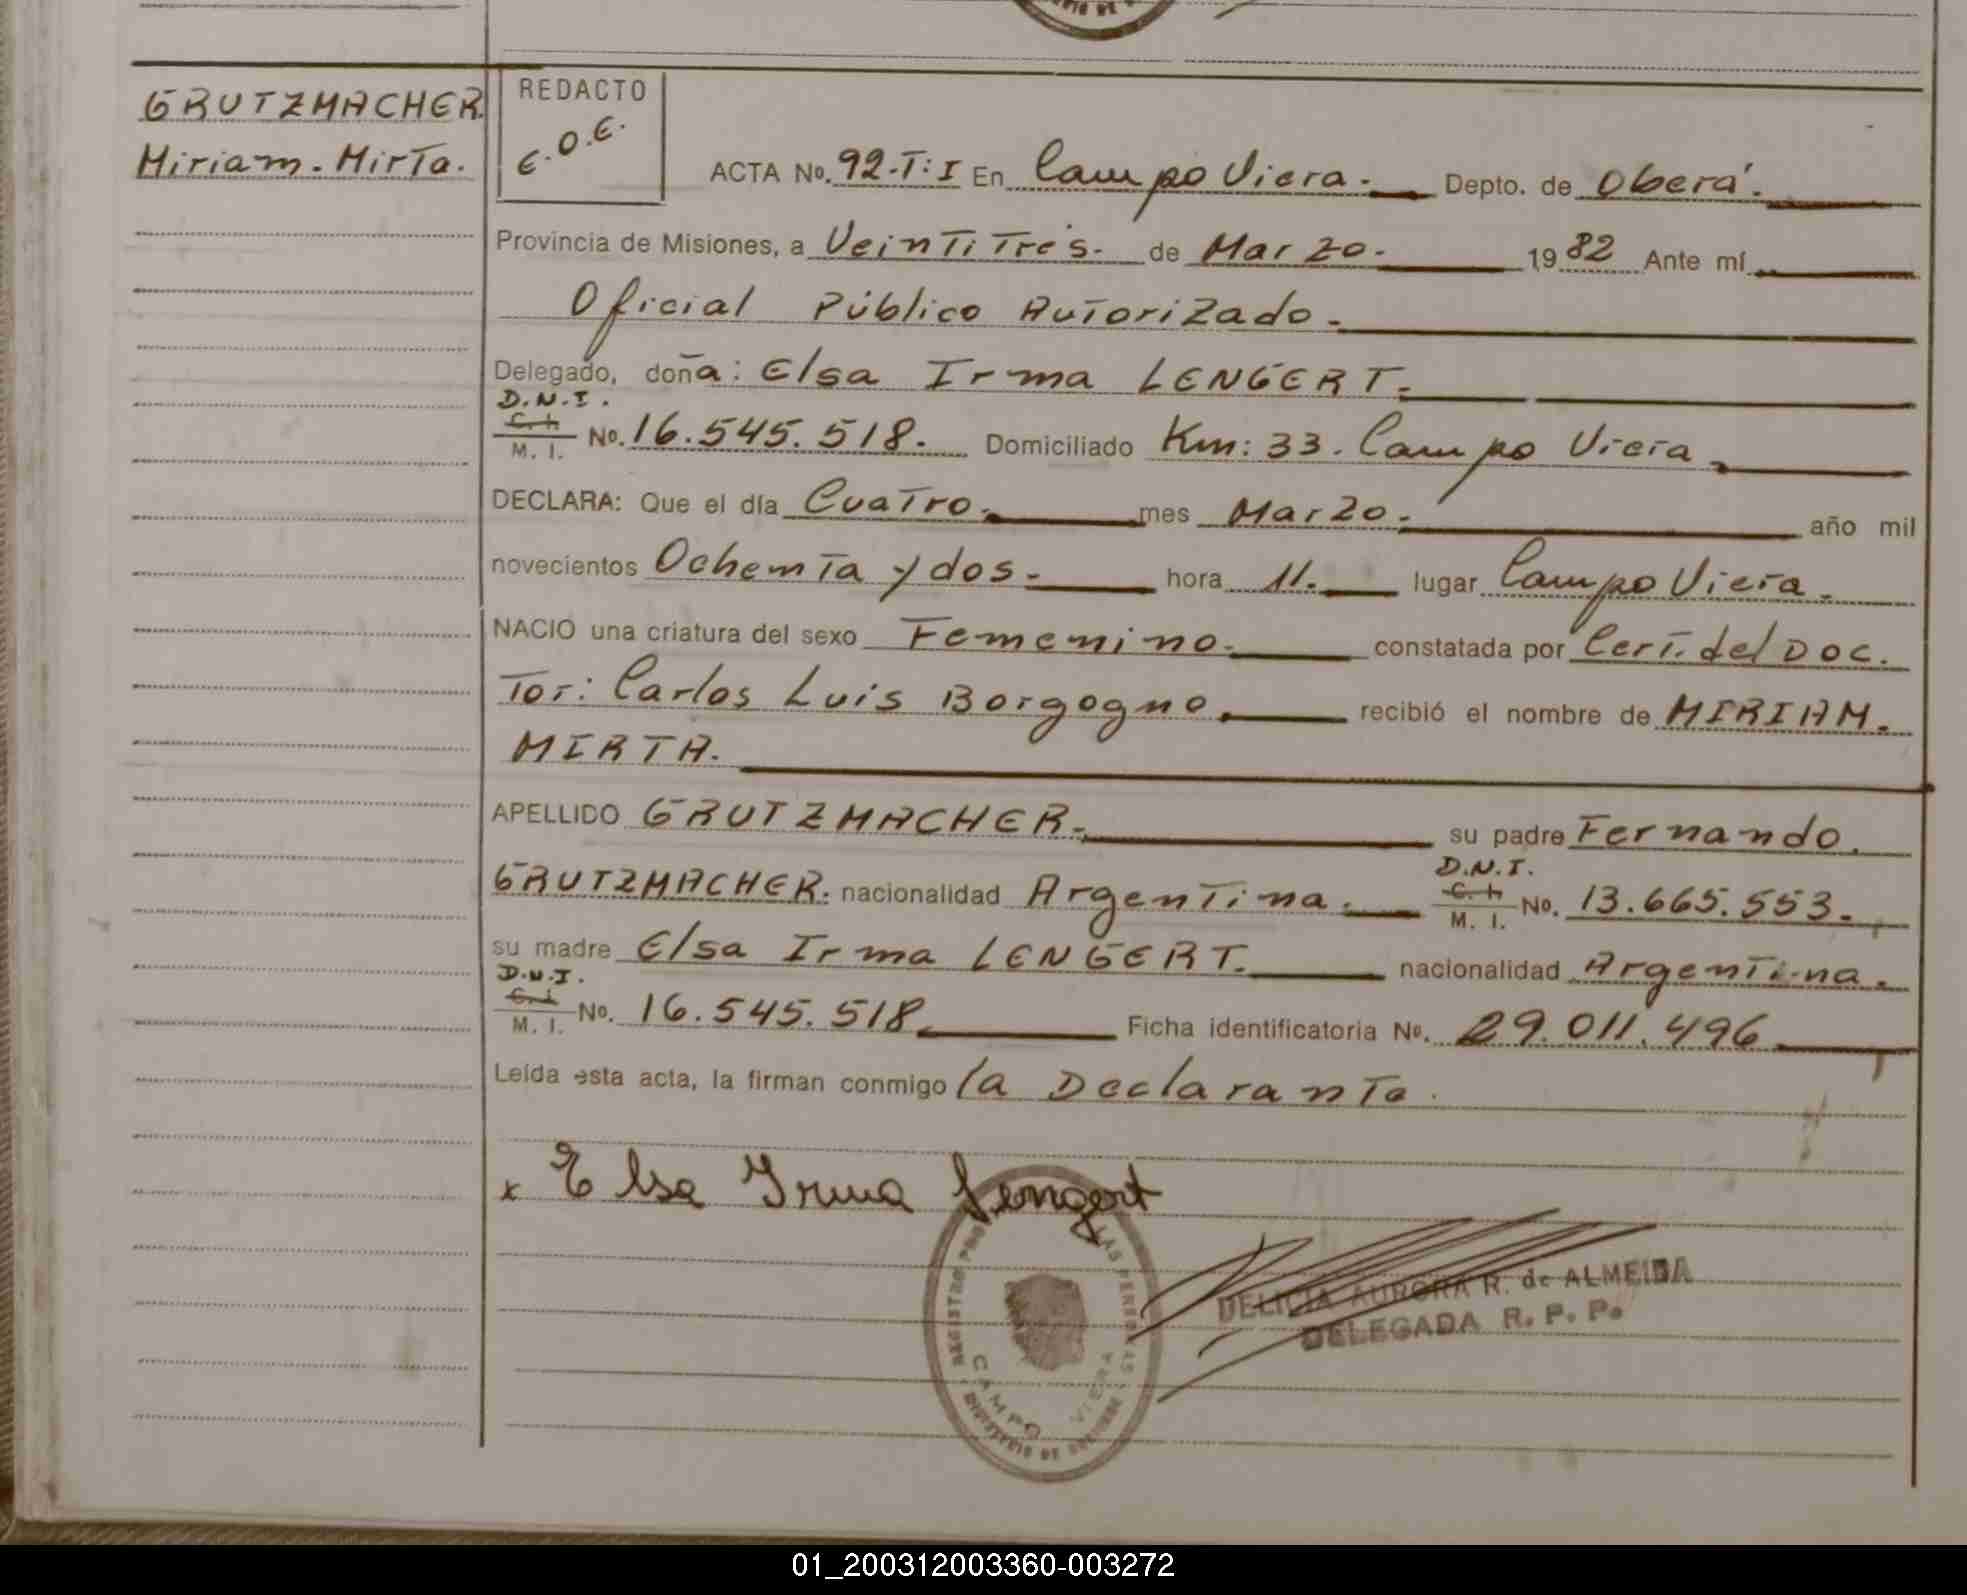 GRUTZMACHER.
Miriam. Mirta.
REDACTO
E.O.E.
ACTA No. 92-T:I En Campo Viera.- Depto. de Oberá.
Provincia de Misiones, a Veintitrés. de Marzo. 1982 Ante mí
Oficial Público Autorizado.
Delegado, doña: Elsa Irma LENGERT.
D.N.I.
C. I.
M. I. No. 16.545.518. Domiciliado Km: 33. Campo Viera
DECLARA: Que el día Cuatro. mes Marzo. año mil
novecientos Ochenta y dos. hora 11. lugar Campo Viera.
NACIO una criatura del sexo Femenino. constatada por Cert. del Doc.
Tor: Carlos Luis Borgogno. recibió el nombre de MIRIAM.
MIRTA.
APELLIDO GRUTZMACHER. su padre Fernando.
D.N.I.
C. I.
GRUTZMACHER. nacionalidad Argentina. M. I. No. 13.665.553.
su madre Elsa Irma LENGERT. nacionalidad Argentina.
D.N.I.
C. I.
M. I. No. 16.545.518 Ficha identificatoria No. 29.011.496
Leída esta acta, la firman conmigo la Declarante.
x Elsa Irma Lengert
REGISTRO LAS PERSONAS
CAMPO VIERA
MINISTERIO DE GOBIERNO
DELICIA AURORA R. de ALMEIDA
DELEGADA R. P. P.
01_200312003360-003272